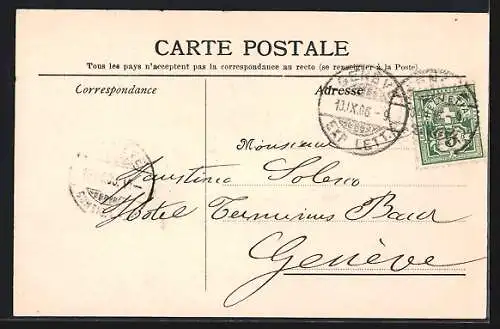 CARTE POSTALE
Tous les pays n'acceptent pas la correspondance au recto (se renseigner à la Poste)
Correspondance
Adresse
GENÈVE
13.IX.06 - 9
EXP. LETT.
HELVETIA
5
Monsieur
Faustino Solesio
Hotel Terminus Baur
Genève